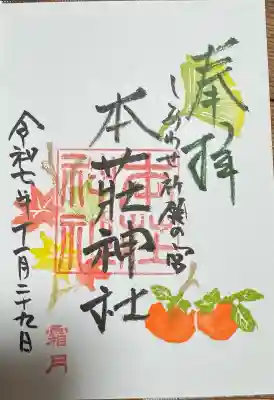 奉拝
しあわせ祈願の宮
本荘神社
令和七年十一月二十九日
霜月